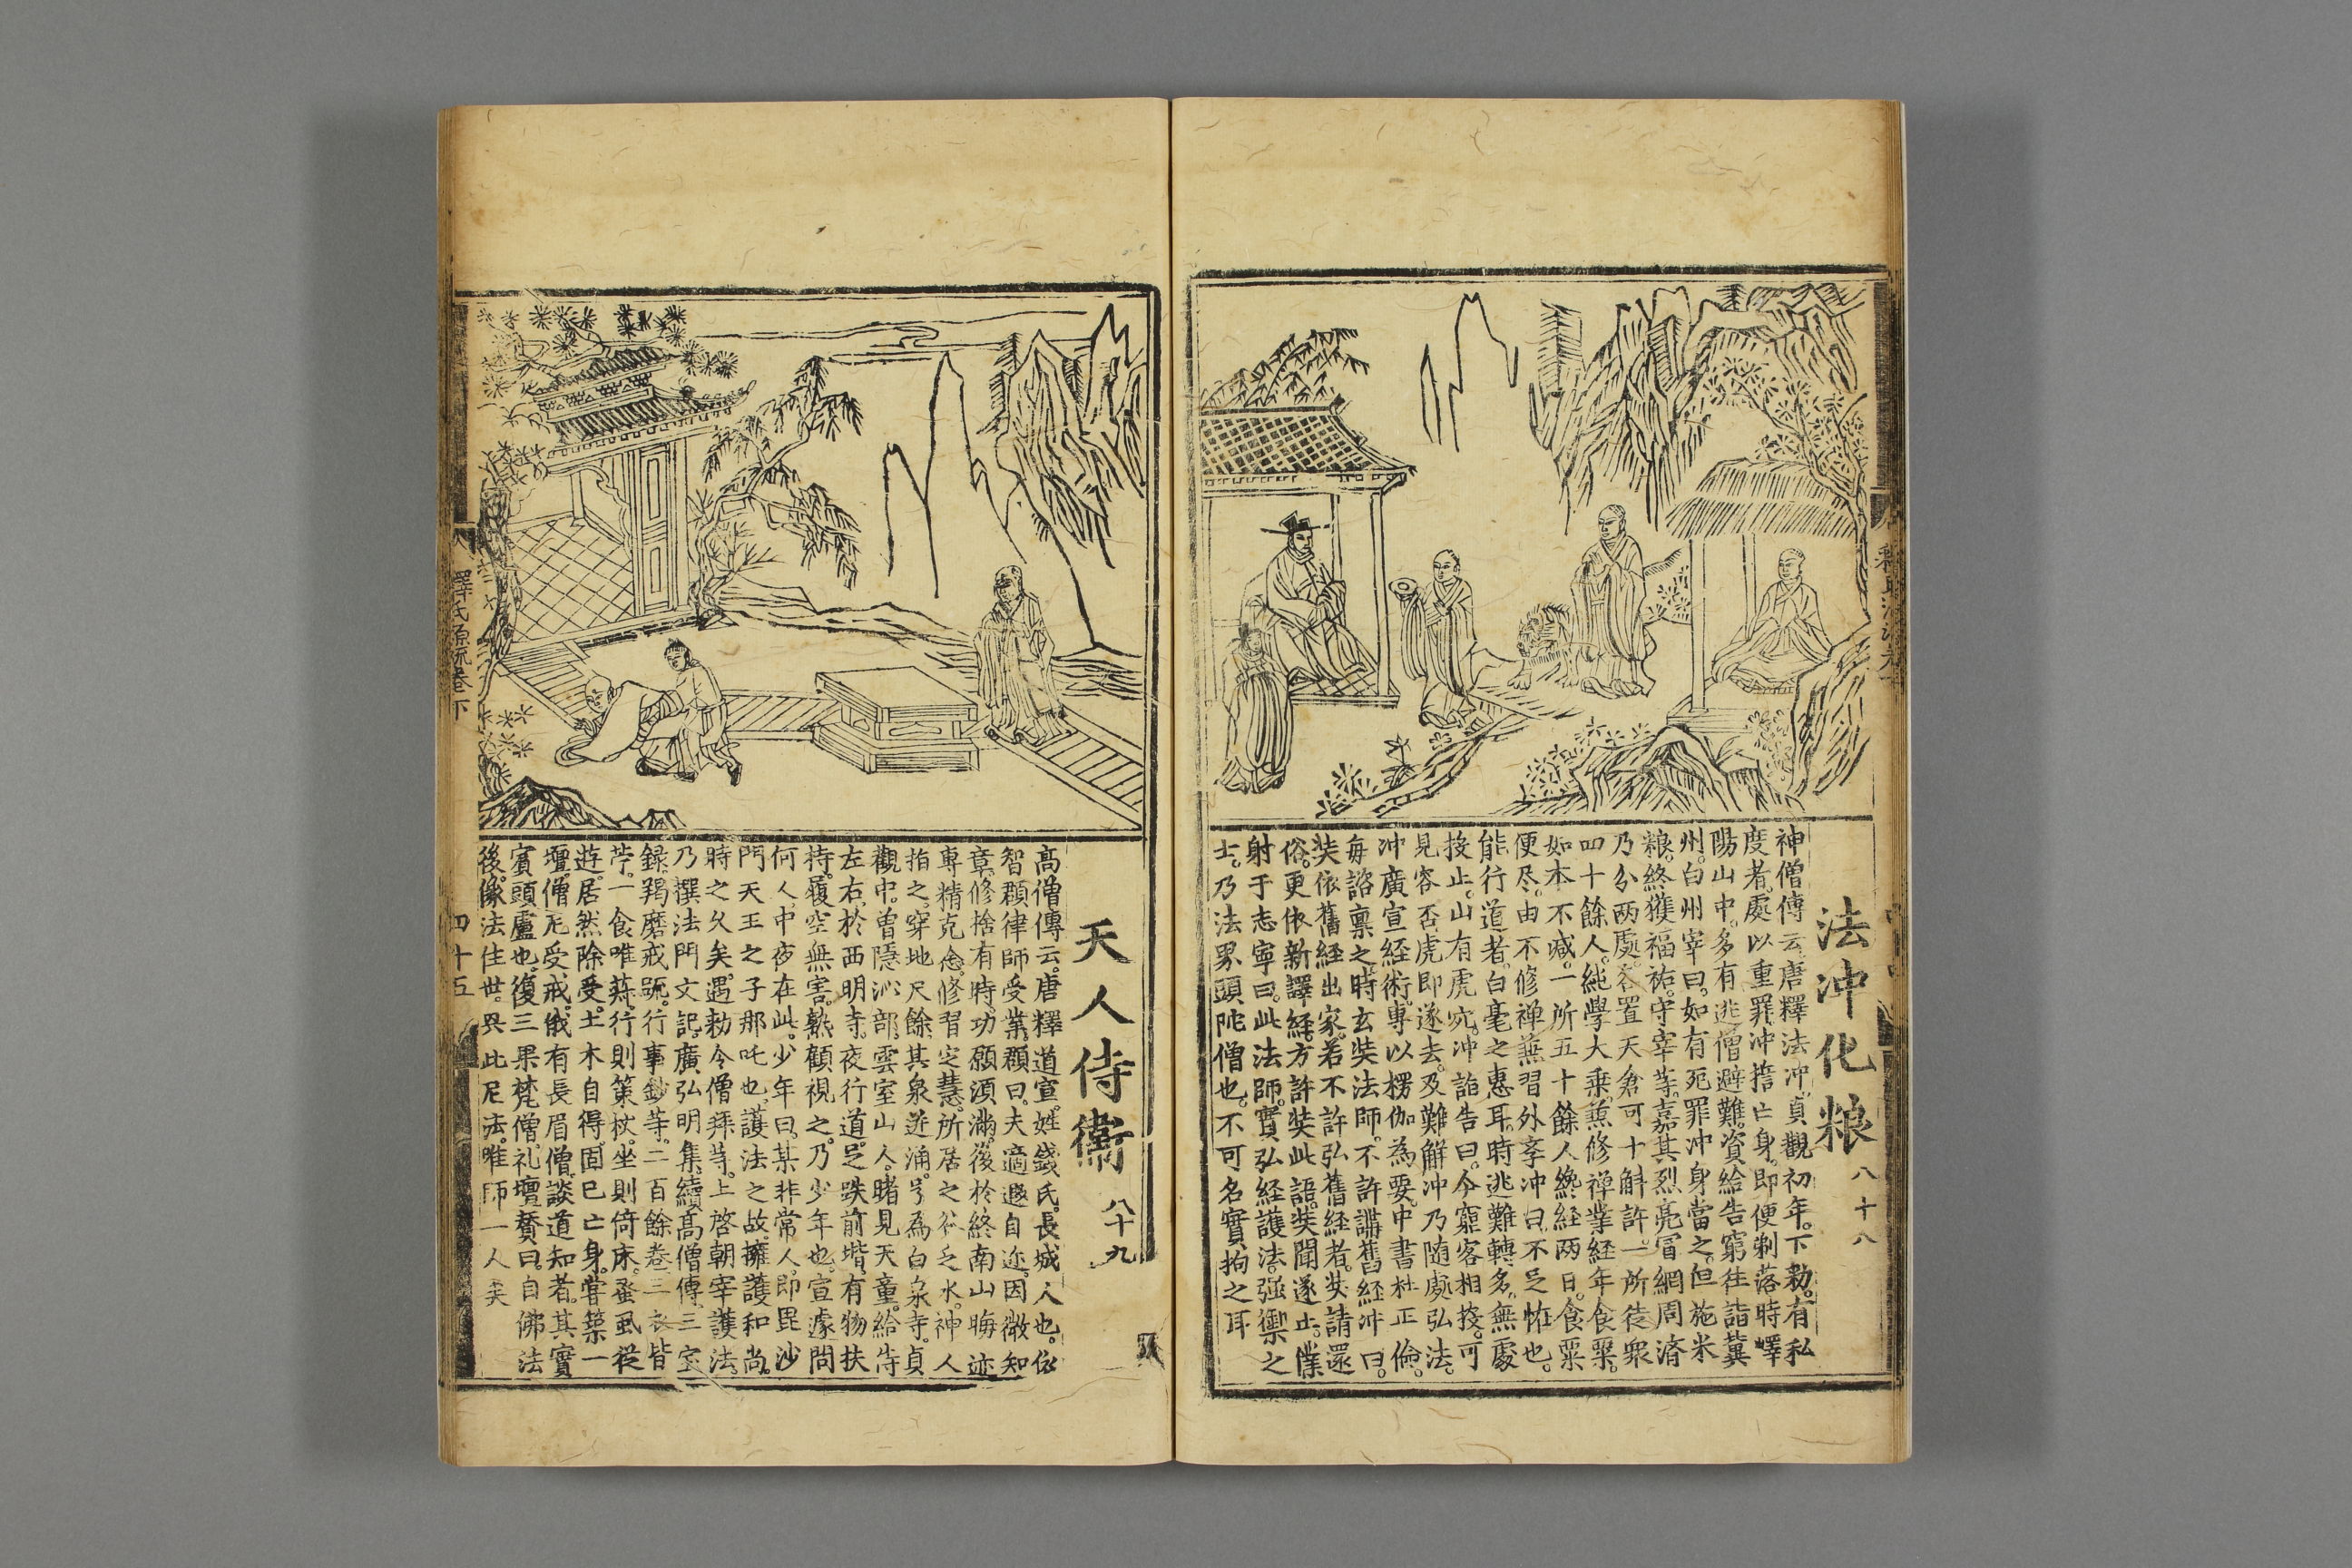 法冲化粮 八十八
神僧傳云唐釋法冲貞觀初年下勑有私
度者處以重罪冲擔亡身即便剃落時嶧
陽山中多有逃僧避難資給告窮往詣冀
州白州宰曰如有死罪冲身當之但施米
粮終獲福祐守宰等嘉其烈亮冒網周済
乃分两處各置天倉可十斛許一所徒衆
四十餘人純學大乗兼修禅業経年食粟
如本不减一所五十餘人纔経两日食粟
便尽由不修禅兼習外李冲曰不足恠也
能行道者白毫之惠耳時逃難轉多無處
投止山有虎穴冲詣告曰今窮客相投可
見容否虎即遂去及難解冲乃随處弘法
冲廣宣経術專以楞伽為要中書杜正倫
每諮稟之時玄奘法師不許講舊経冲曰
奘依舊経出家若不許弘舊経者奘請還
俗更依新譯経方許奘此語奘聞遂止僕
射于志寧曰此法師實弘経護法強禦之
士乃法界頭陁僧也不可名實拘之耳
天人侍衞 八十九
高僧傳云唐釋道宣姓錢氏長城人也依
智頵律師受業頵曰夫適遐自迩因微知
章修捨有時功願湏滿後於終南山晦迹
專精克念修習定慧所居之谷乏水神人
指之穿地尺餘其泉迸涌号為白泉寺貞
觀中曽隠沁部雲室山人睹見天童給侍
左右於西明寺夜行道足跌前堦有物扶
持履空無害熟顧視之乃少年也宣遽問
何人中夜在此少年曰某非常人即毘沙
門天王之子那吒也護法之故擁護和尚
時之久矣遇勑令僧拜等上啓朝宰護法
乃撰法門文記廣弘明集續高僧傳三宝
録羯磨戒䟽行事鈔等二百餘卷三衣皆
苧一食唯菽行則策杖坐則倚床蚤虱従
遊居然除受土木自得固巳亡身甞築一
壇僧尼受戒俄有長眉僧談道知者其實
賓頭盧也復三果梵僧礼壇賛曰自佛法
後像法住世興此尼法唯師一人矣
釋氏源流卷下
四十五